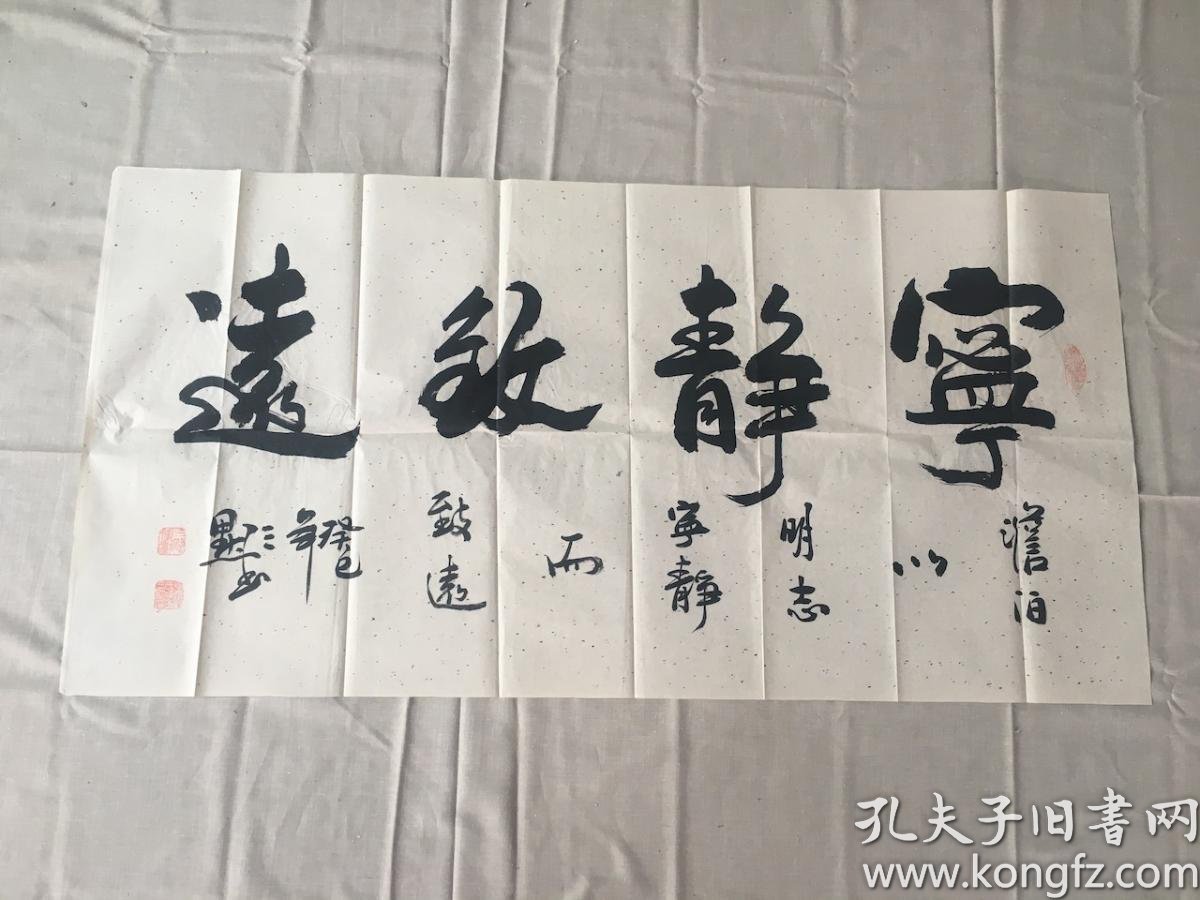 寧靜致遠
澹泊
以
明志
寧靜
而
致遠
癸巳
年
孔夫子旧书网
www.kongfz.com